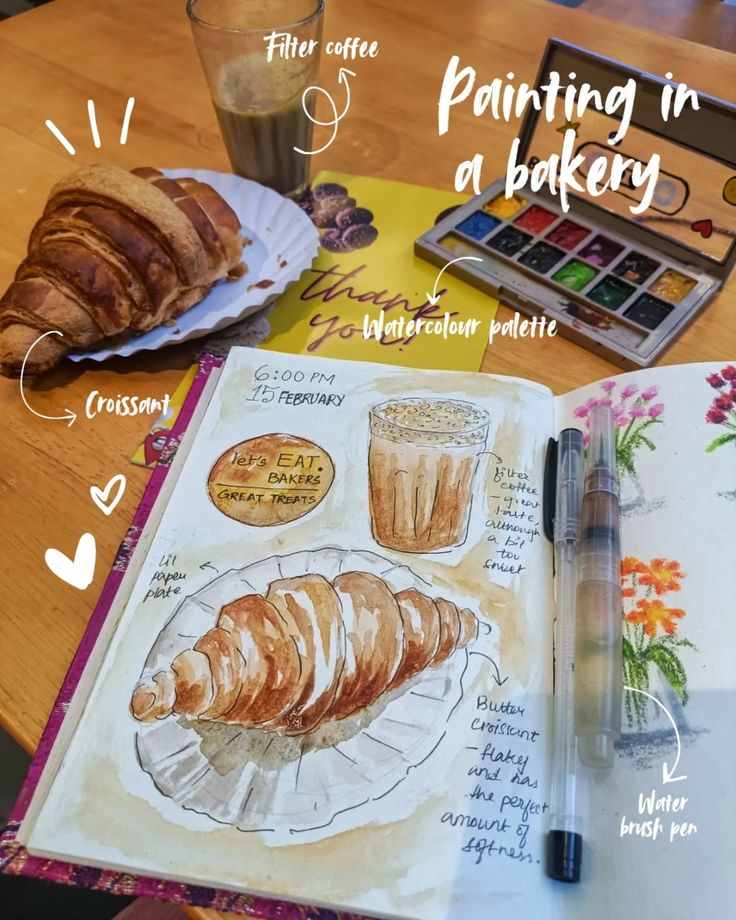 Painting in
a bakery
Filter coffee
Thank
you!
Watercolour palette
Croissant
6:00 PM
15 FEBRUARY
let's EAT.
BAKERS
GREAT TREATS
filter
coffee
- great
taste,
although
a bit
too
sweet
Lil
paper
plate
Butter
croissant
- flaky
and has
the perfect
amount of
softness.
Water
brush pen